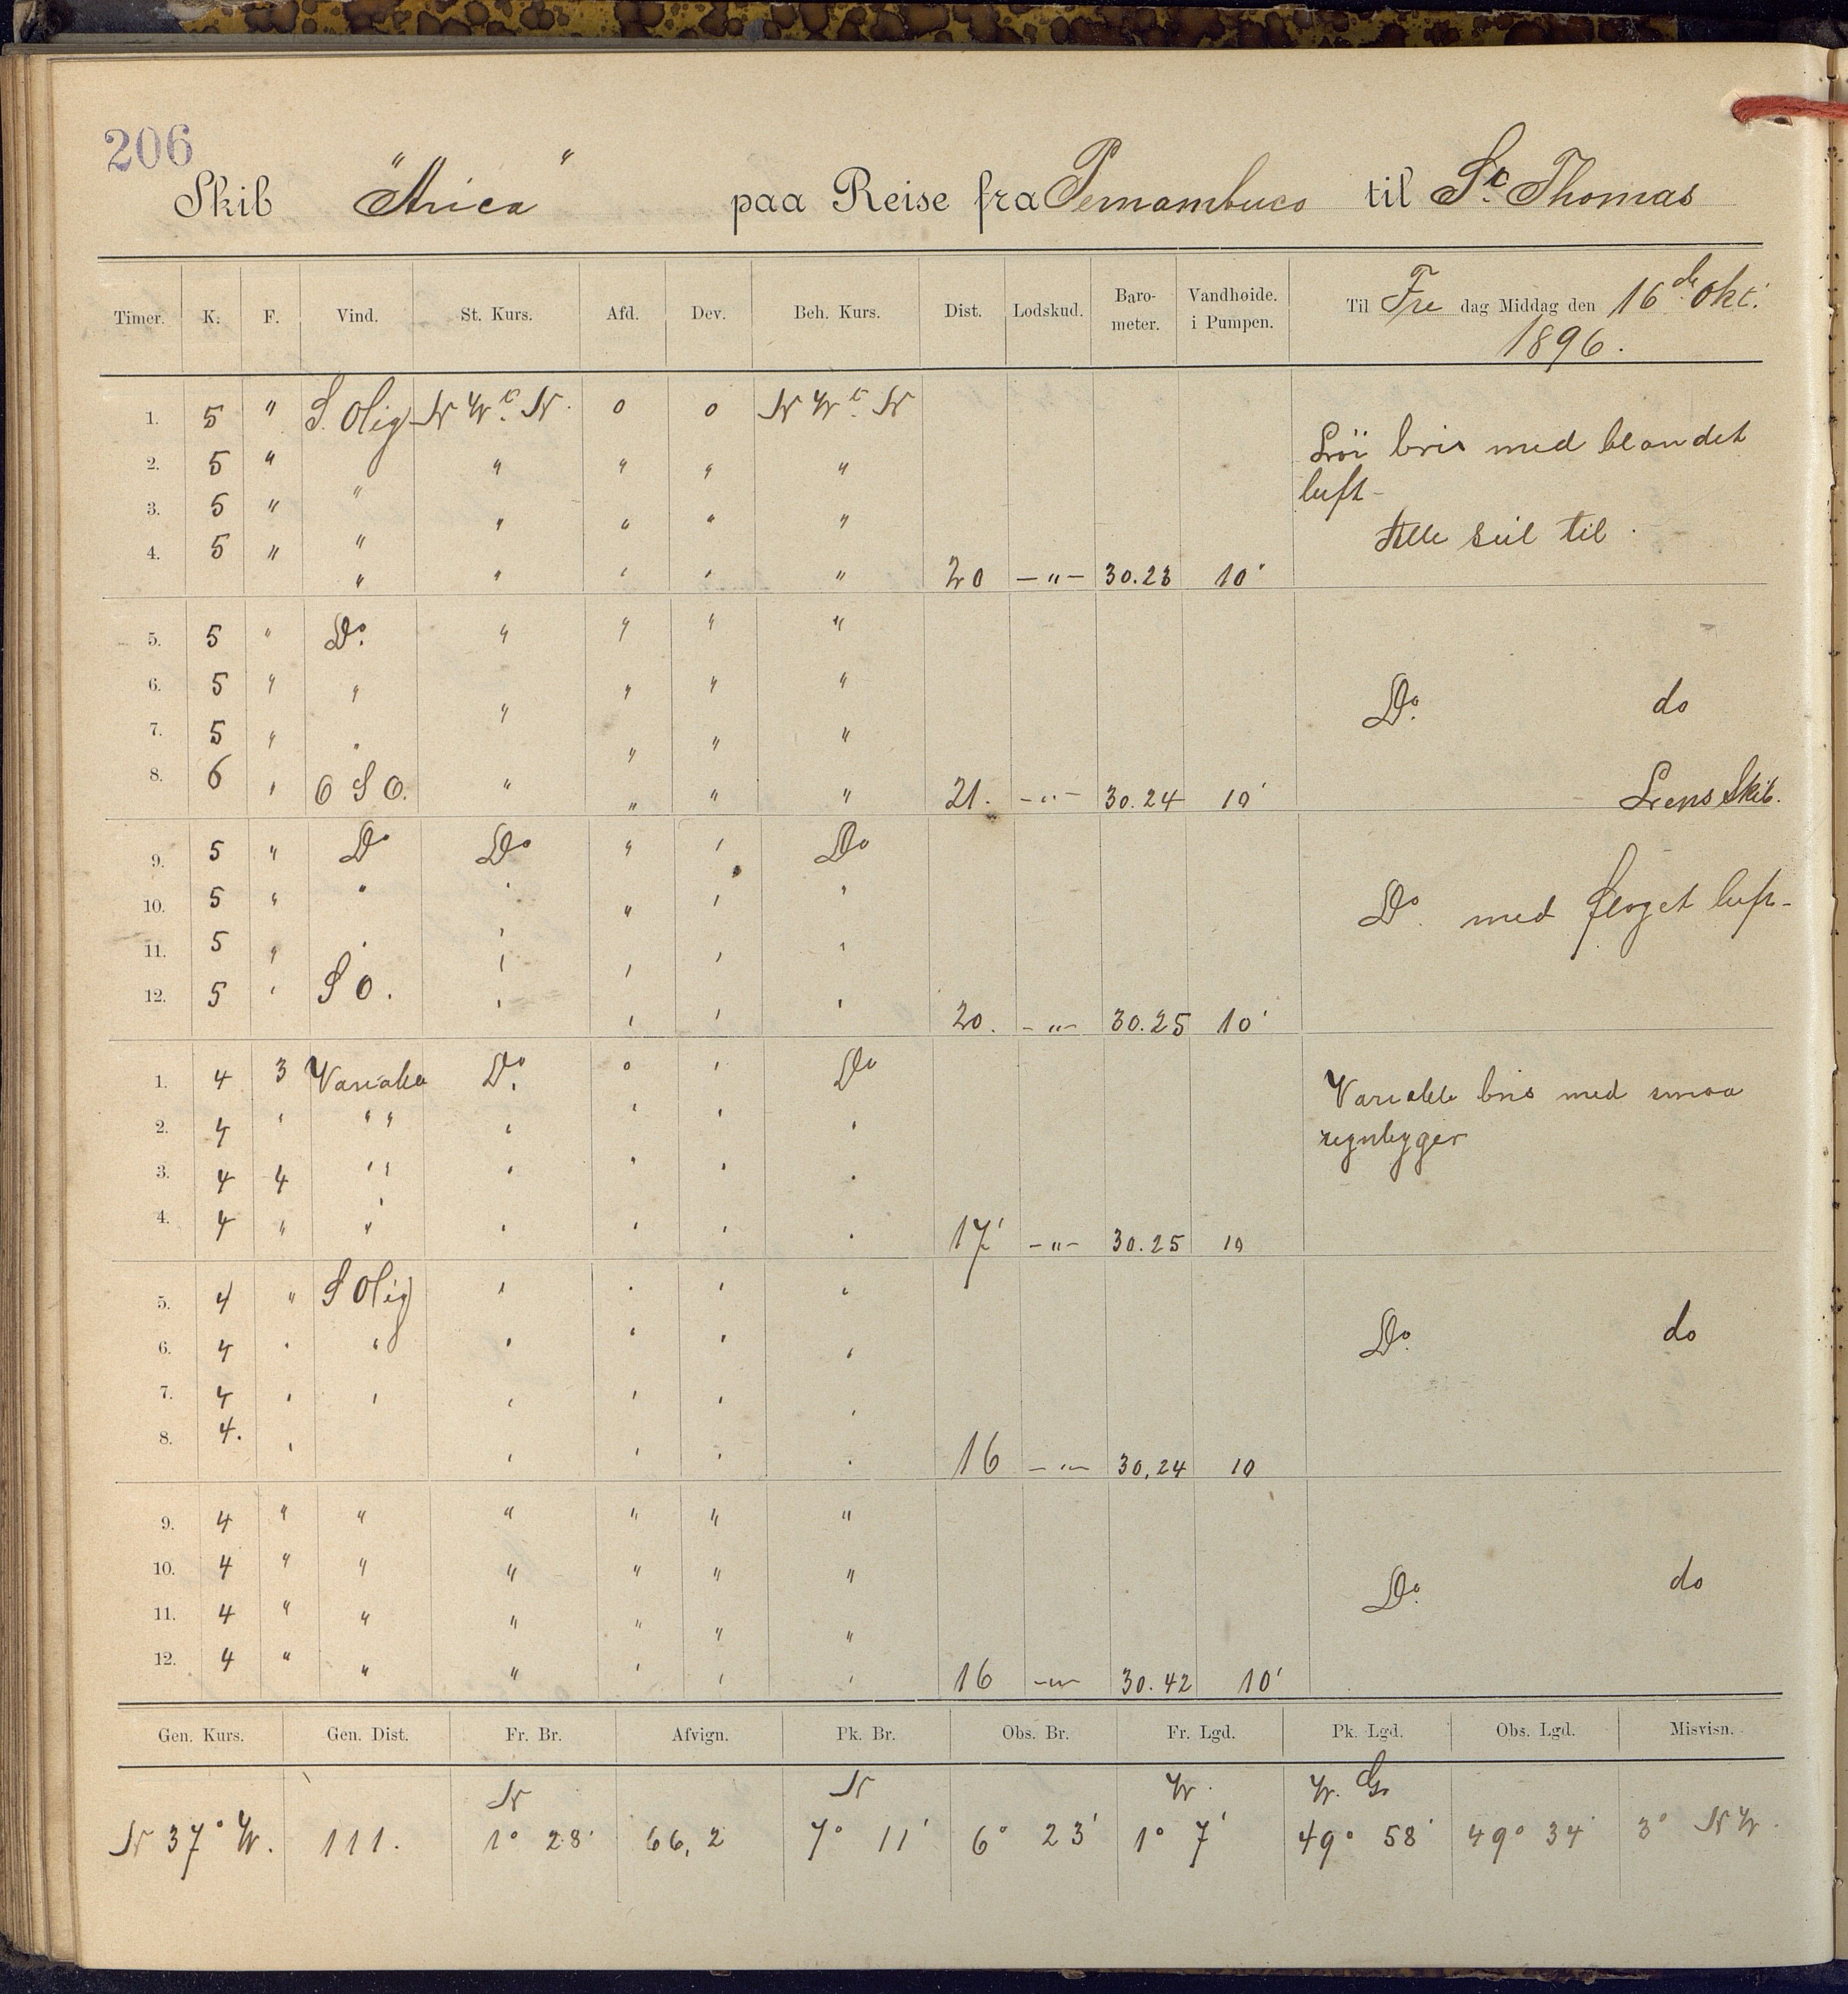 206
Skib "Arica" paa Reise fra Pernambuco til St. Thomas
Timer. K. F. Vind. St. Kurs. Afd. Dev. Beh. Kurs. Dist. Lodskud. Baro-meter. Vandhøide. i Pumpen. Til Fre dag Middag den 16de Okt.
1896.
1. 5 " S. Olig N W t. N. o o N W t. N
Frøi bris med blandet
2. 5 " " " " "
luft-
3. 5 " " " " " "
Alle seil til.
4. 5 " " " " " "
" 20 -"- 30.23 10'
5. 5 " Do. " " " "
6. 5 " " " " " " Do. do
7. 5 " " " " " "
8. 6 " O S O. " " " " 21. -"- 30.24 10' Lens Skib.
9. 5 " Do Do " " Do
10. 5 " " " " " " Do. med fløget luft-
11. 5 " " " " " "
12. 5 " S O. " " " " 20. -"- 30.25 10'
1. 4 3 Variabel Do. o " Do Variable bris med smaa
2. 4 " " " " " " " regnbyger
3. 4 4 " " " " " "
4. 4 " " " " " " 17' -"- 30.25 10
5. 4 " S Olig " " " "
6. 4 " " " " " " Do. do
7. 4 " " " " " "
8. 4. " " " " " 16 -"- 30,24 10
9. 4 " " " " " "
10. 4 " " " " " " Do. do
11. 4 " " " " " "
12. 4 " " " " " " 16 -"- 30.42 10'
Gen. Kurs. Gen. Dist. Fr. Br. Afvign. Pk. Br. Obs. Br. Fr. Lgd. Pk. Lgd. Obs. Lgd. Misvisn.
N N W. W. G.
N 37° W. 111. 1° 28' 66,2 7° 11' 6° 23' 1° 7' 49° 58' 49° 34' 3° N W.